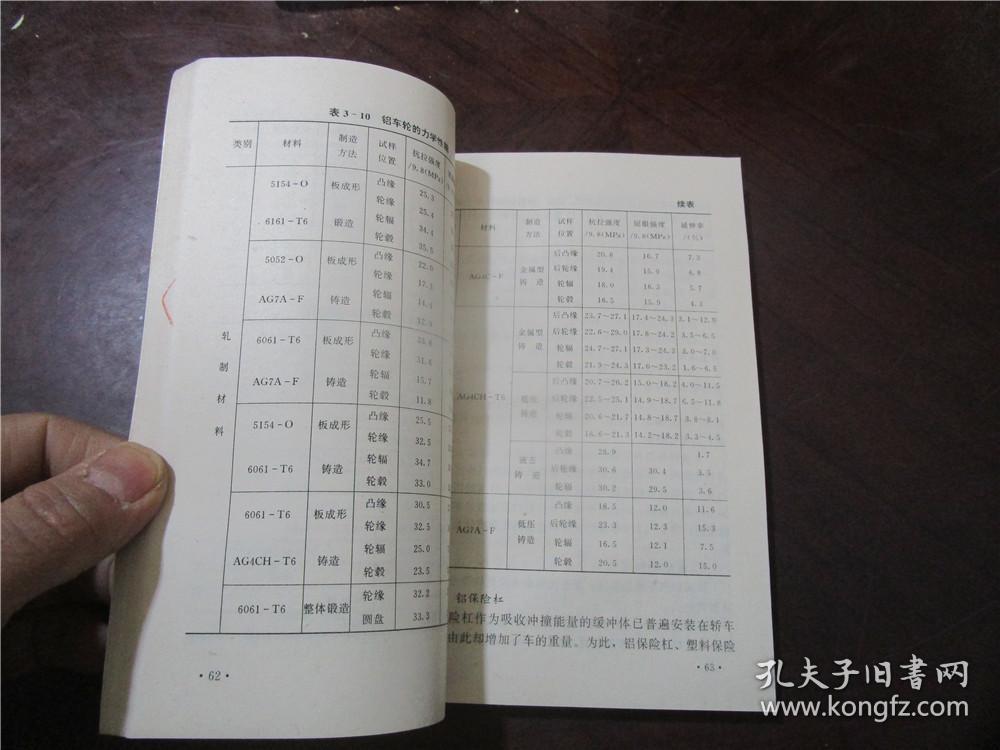 表3-10 铝车轮的力学性能
类别 材料 制造方法 试样位置 抗拉强度/9.8(MPa)
轧制材料
5154-O 板成形 凸缘 25.3
轮缘 25.4
6161-T6 锻造 轮辐 34.4
轮毂 35.5
5052-O 板成形 凸缘 22.0
轮缘 17.3
AG7A-F 铸造 轮辐 14.4
轮毂
6061-T6 板成形 凸缘
轮缘 31.6
AG7A-F 铸造 轮辐 15.7
轮毂 11.8
5154-O 板成形 凸缘 25.5
轮缘 32.5
6061-T6 铸造 轮辐 34.7
轮毂 33.0
6061-T6 板成形 凸缘 30.5
轮缘 32.5
AG4CH-T6 铸造 轮辐 25.0
轮毂 23.5
6061-T6 整体锻造 轮缘 32.2
圆盘 33.3
·62·
续表
材料 制造方法 试样位置 抗拉强度/9.8(MPa) 屈服强度/9.8(MPa) 延伸率/(%)
AG4C-F 金属型铸造 后凸缘 20.8 16.7 7.3
后轮缘 19.4 15.9 6.8
轮辐 18.0 16.3 5.7
轮毂 16.5 15.9 4.3
AG4CH-T6 金属型铸造 后凸缘 23.7~27.1 17.4~24.3 3.1~12.9
后轮缘 22.6~29.0 17.8~24.2 3.5~6.5
轮辐 24.7~27.1 17.3~24.3 3.0~7.0
轮毂 21.9~24.3 17.6~23.2 1.6~6.5
低压铸造 后凸缘 20.7~26.2 15.0~18.2 4.0~11.5
后轮缘 22.5~25.1 14.9~18.7 6.5~11.8
轮辐 20.6~21.7 14.8~18.7 3.8~8.1
轮毂 16.6~21.3 14.2~18.2 3.3~4.5
液压铸造 凸缘 23.9 1.7
后轮缘 30.6 30.4 3.5
轮辐 30.2 29.5 3.6
AG7A-F 低压铸造 凸缘 18.5 12.0 11.6
后轮缘 23.3 12.3 15.3
轮辐 16.5 12.1 7.5
轮毂 20.5 12.0 15.0
铝保险杠
险杠作为吸收冲撞能量的缓冲体已普遍安装在轿车
由此却增加了车的重量。为此，铝保险杠、塑料保险
·63·
孔夫子旧书网
www.kongfz.com